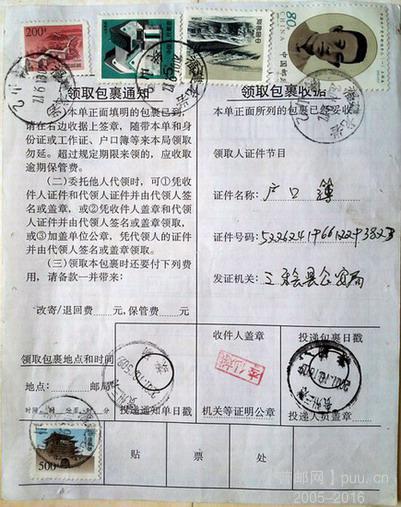 200分
80分
中国邮政
领取包裹通知
领取包裹收据
本单正面填明的包裹已到,
请在右边收据上签章,随带本单和
身份证或工作证、户口簿等来本局领取
勿延。超过规定期限来领的,应收取
逾期保管费。
(二)委托他人代领时,可①凭收
件人证件和代领人证件并由代领人签
名或盖章,或②凭收件人盖章和代领
人证件并由代领人签名或盖章领取,
或③加盖单位公章,凭代领人的证件
并由代领人签名或盖章领取。
(三)领取本包裹时还要付下列费
用,请备款一并带来:
改寄/退回费 元,保管费 元。
领取包裹地点和时间
地点: 邮局
本单正面所列的包裹已经妥收
领取人证件节目
证件名称: 户口簿
证件号码:
发证机关: 三穗县公安局
收件人盖章
投递包裹日戳
投递通知单日戳
机关等证明公章
投递人员盖章
500
贴 票 处
puu.cn
2005-2016